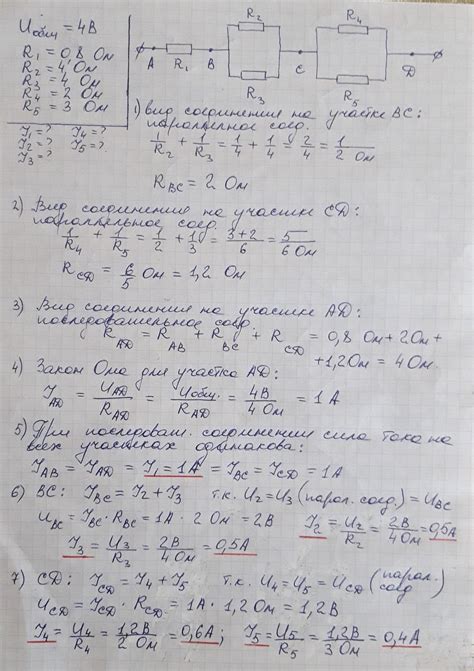 Uобщ = 4В
R₁ = 0,8 Ом
R₂ = 4 Ом
R₃ = 4 Ом
R₄ = 2 Ом
R₅ = 3 Ом
I₁ = ? I₄ = ?
I₂ = ? I₅ = ?
I₃ = ?
R₂ R₄
A R₁ B C D
R₃ R₅
1) вид соединения на участке BC:
параллельное соед.
1/R₂ + 1/R₃ = 1/4 + 1/4 = 2/4 = 1/2 Ом
R_BC = 2 Ом
2) Вид соединения на участке CD:
параллельное соед.
1/R₄ + 1/R₅ = 1/2 + 1/3 = (3+2)/6 = 5/6 Ом
R_CD = 6/5 Ом = 1,2 Ом
3) Вид соединения на участке AD:
последовательное соед.
R_AD = R_AB + R_BC + R_CD = 0,8 Ом + 2 Ом +
+ 1,2 Ом = 4 Ом.
4) Закон Ома для участка AD:
I_AD = U_AD/R_AD = Uобщ./R_AD = 4В/4 Ом = 1 А
5) При последоват. соединении сила тока на
всех участках одинакова:
I_AB = I_AD = I₁ = 1А = I_BC = I_CD = 1А
6) BC: I_BC = I₂ + I₃ т.к. U₂ = U₃ (парал. соед.) = U_BC
U_BC = I_BC · R_BC = 1А · 2 Ом = 2В I₂ = U₂/R₂ = 2В/4 Ом = 0,5А
I₃ = U₃/R₃ = 2В/4 Ом = 0,5А
7) CD: I_CD = I₄ + I₅ т.к. U₄ = U₅ = U_CD (парал. соед)
U_CD = I_CD · R_CD = 1А · 1,2 Ом = 1,2В
I₄ = U₄/R₄ = 1,2В/2 Ом = 0,6А; I₅ = U₅/R₅ = 1,2В/3 Ом = 0,4А